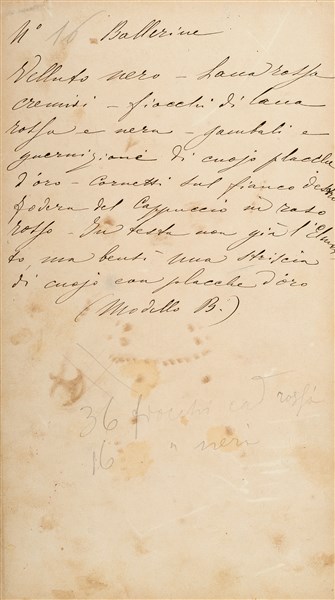 N° 16 Ballerine
Velluto nero - Lana rossa
cremisi - fiocchi di lana
rossa e nera - gambali e
guernizione di cuojo placche
d'oro - Cornetti sul fianco destro
fodera del Cappuccio in raso
rosso - In testa non già l'Elmet
to, ma bensì una striscia
di cuojo con placche d'oro
(Modello B.)
36 fiocchi rossi
16 " neri